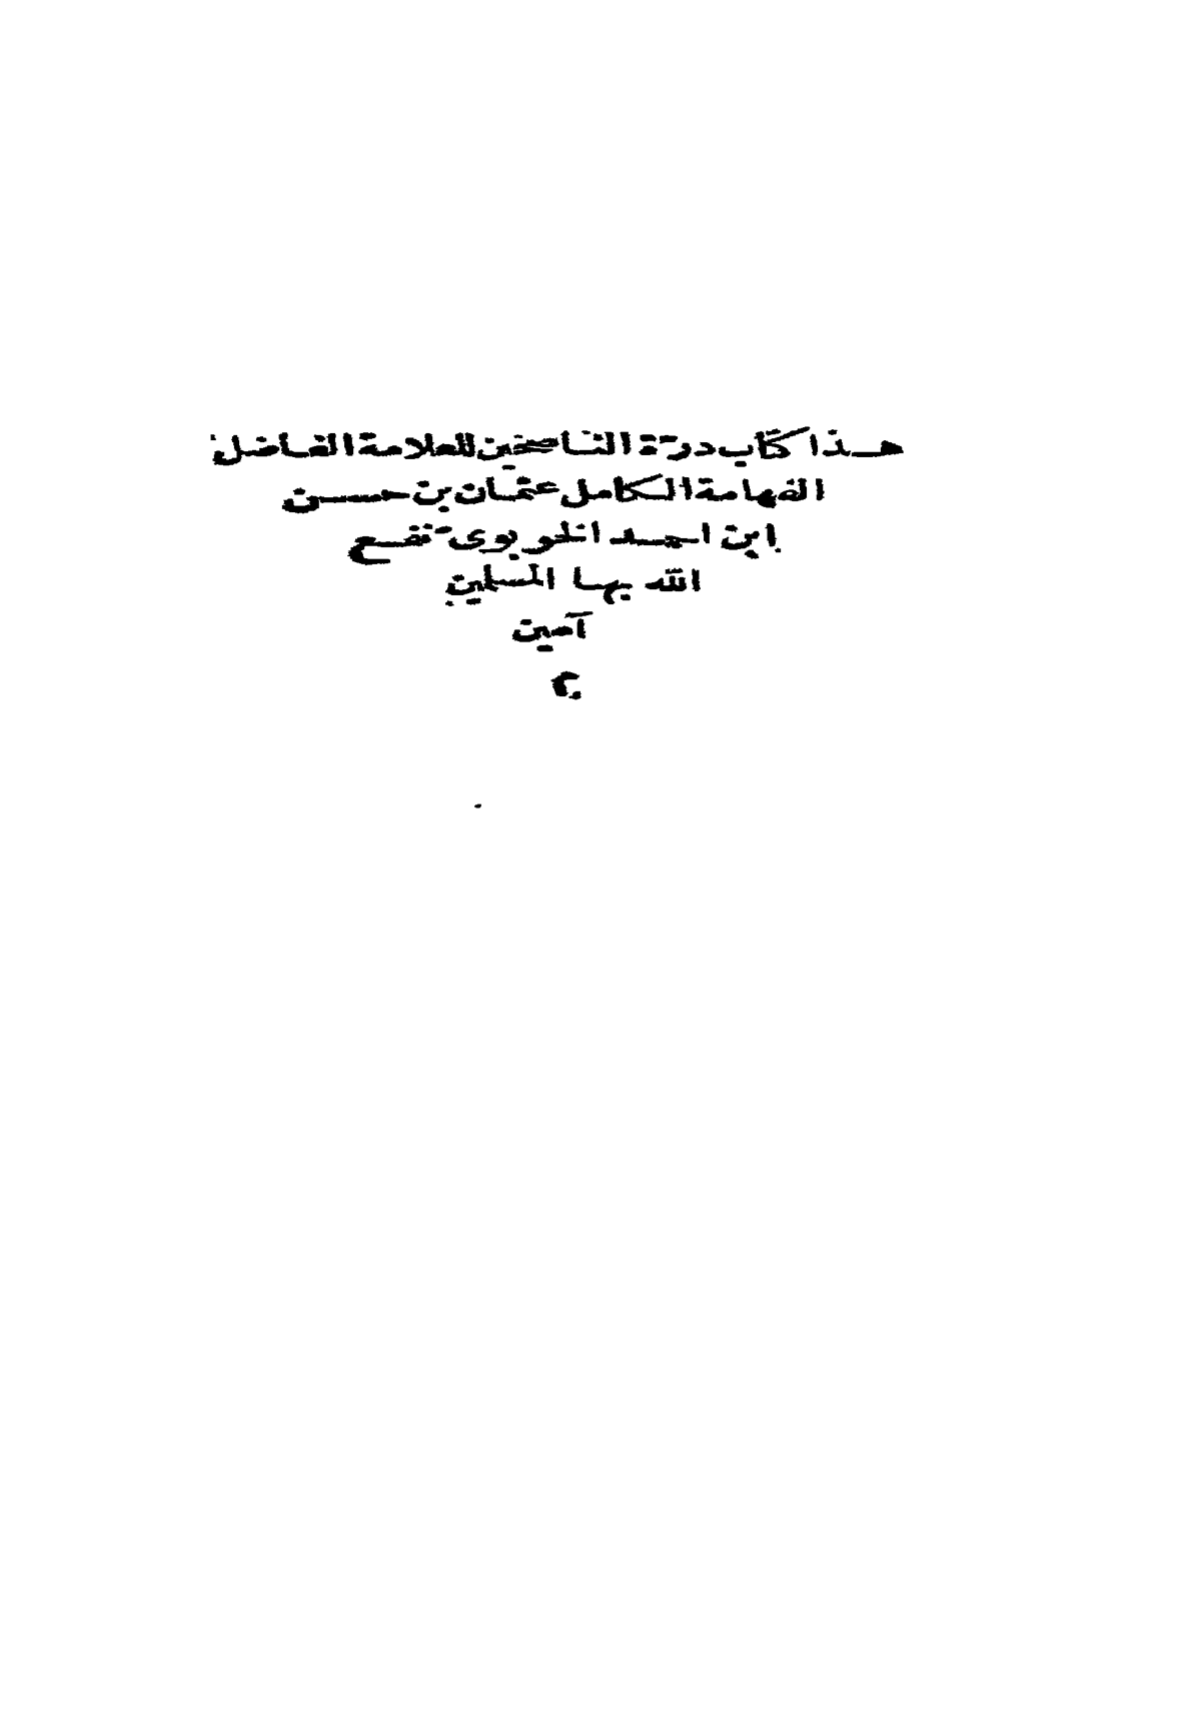 هذا كتاب درة الناصحين للعلامة الفاضل
الفهامة الكامل عثمان بن حسن
ابن احمد الخوبوى نفع
الله بها المسلمين
آمين
م